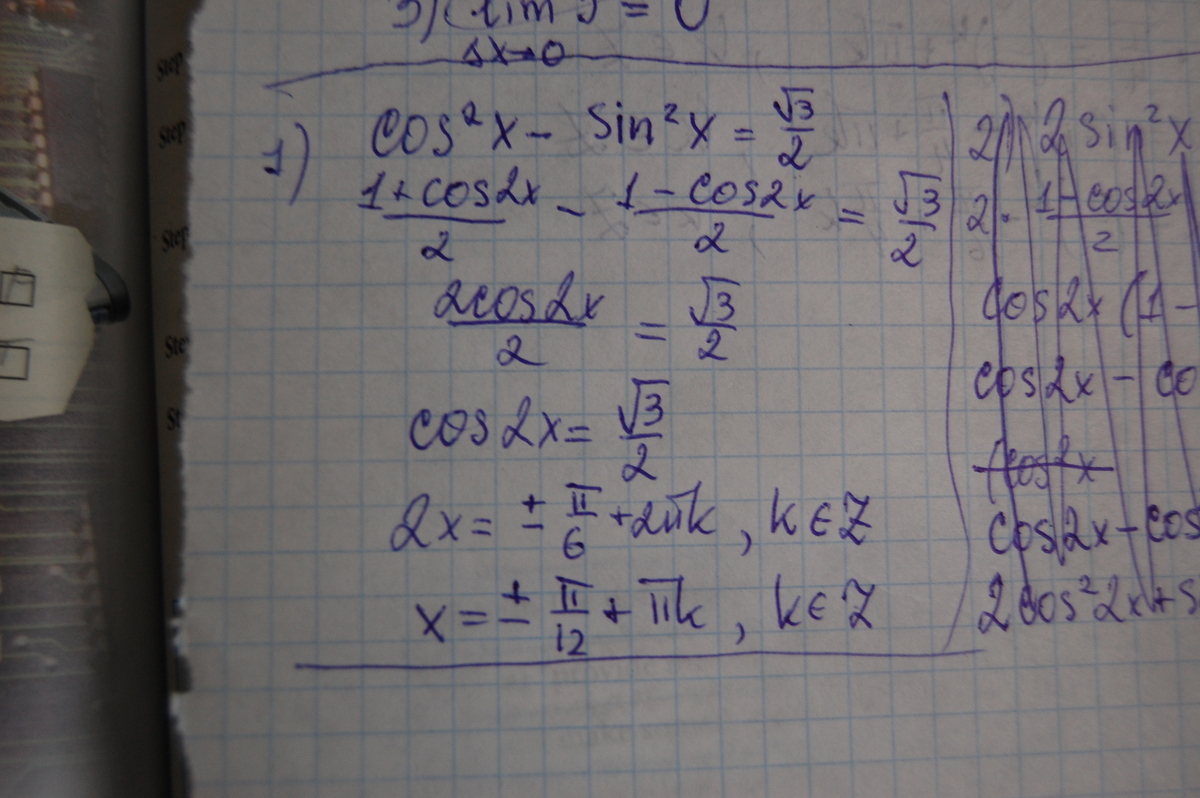 3) (lim) = 0
Δx→0
1) cos²x - sin²x = √3/2
(1+cos2x)/2 - (1-cos2x)/2 = √3/2
2cos2x/2 = √3/2
cos2x = √3/2
2x = ± π/6 + 2πk, k∈Z
x = ± π/12 + πk, k∈Z
2) 2sin²x
2· (1-cos2x)/2
cos2x (1-
cos2x -
(cos2x
cos2x - cos
2cos²2x +
Step
Step
Step
Step